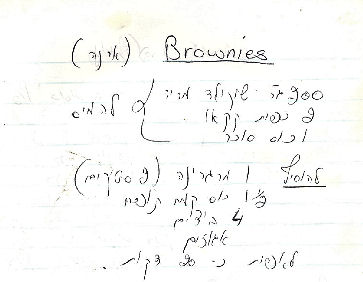 Brownies
200 גר' שוקולד מריר
להמיס
2 כפות קקאו
1 כוס סוכר
להוסיף 1 מרגרינה (2 סטיקים)
1 1/2 כוס קמח תופח
4 ביצים
אגוזים
לאפות כ- 20 דקות.